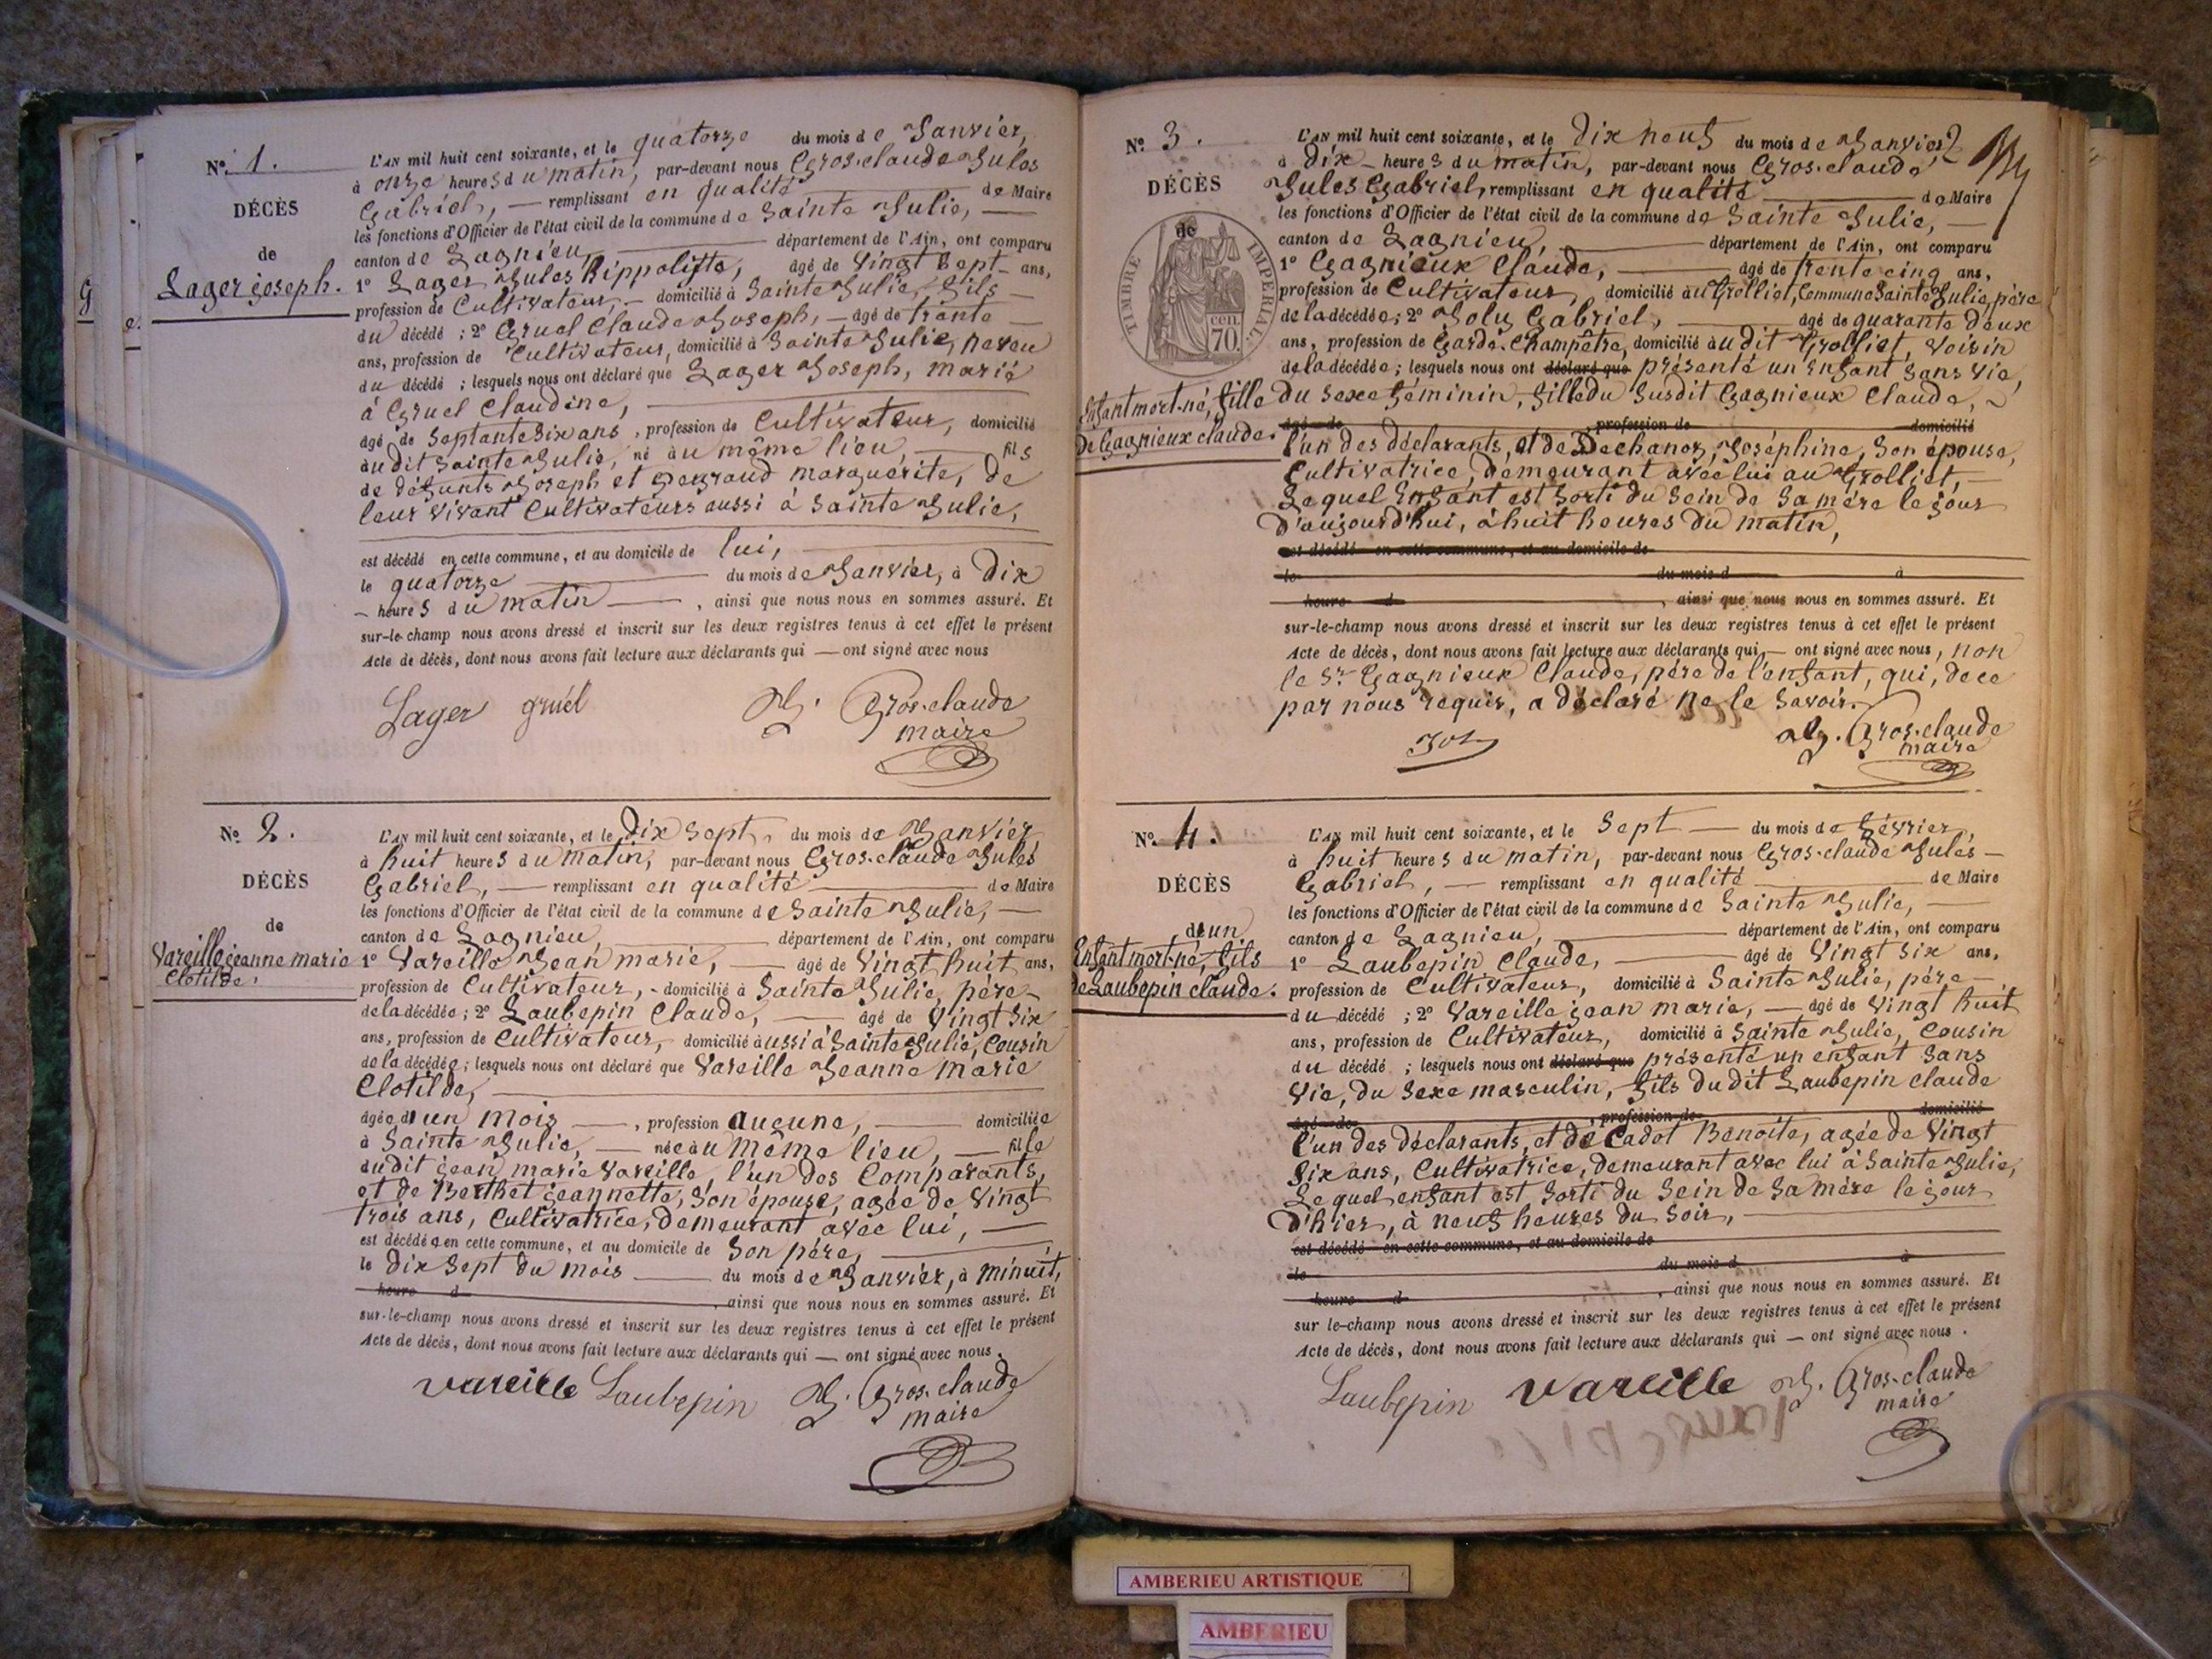 No. 1.
DÉCÈS
de
Lager joseph.
G
e.
L'AN mil huit cent soixante, et le quatorze du mois de Janvier,
à onze heures du matin, par-devant nous Gros-claude Jules
Gabriel, — remplissant en qualité — de Maire
les fonctions d'Officier de l'état civil de la commune de Sainte Julie, —
canton de Lagnieu, — département de l'Ain, ont comparu
1° Lager Jules Hippolitte, âgé de Vingt Sept ans,
profession de Cultivateur, — domicilié à Sainte Julie, fils —
du décédé ; 2° Gruel Claude Joseph, — âgé de trente —
ans, profession de Cultivateur, domicilié à Sainte Julie, neveu
du décédé ; lesquels nous ont déclaré que Lager Joseph, marié
à Gruel Claudine, —
âgé de Septante Six ans, profession de Cultivateur, domicilié
au dit Sainte Julie, né au même lieu, — fils
de défunts Joseph et marguerite, de
leur vivant Cultivateurs aussi à Sainte Julie,
est décédé en cette commune, et au domicile de lui, —
le quatorze — du mois de Janvier, à Dix
— heures du matin —, ainsi que nous nous en sommes assuré. Et
sur-le-champ nous avons dressé et inscrit sur les deux registres tenus à cet effet le présent
Acte de décès, dont nous avons fait lecture aux déclarants qui — ont signé avec nous
Lager gruél J. Gros-claude
maire
No. 2.
DÉCÈS
de
Vareille jeanne marie
Clotilde.
L'AN mil huit cent soixante, et le Dix Sept, du mois de Janvier
à huit heures du matin, par-devant nous Gros-claude Jules
Gabriel, — remplissant en qualité — de Maire
les fonctions d'Officier de l'état civil de la commune de Sainte Julie, —
canton de Lagnieu, — département de l'Ain, ont comparu
1° Vareille Jean marie, — âgé de Vingt huit ans,
profession de Cultivateur, - domicilié à Sainte Julie, père —
de la décédée ; 2° Laubepin Claude, — âgé de Vingt Six
ans, profession de Cultivateur, domicilié aussi à Sainte Julie, Cousin
de la décédée ; lesquels nous ont déclaré que Vareille Jeanne Marie
Clotilde, —
âgée d'un mois —, profession aucune, — domiciliée
à Sainte Julie, — née au même lieu, — fille
du dit jean marie Vareille, l'un des Comparants,
et de Berthet jeannette, Son épouse, agée de Vingt
trois ans, Cultivatrice, demeurant avec lui, —
est décédée en cette commune, et au domicile de Son père, —
le dix Sept du mois — du mois de Janvier, à minuit,
heure d , ainsi que nous nous en sommes assuré. Et
sur-le-champ nous avons dressé et inscrit sur les deux registres tenus à cet effet le présent
Acte de décès, dont nous avons fait lecture aux déclarants qui — ont signé avec nous.
vareille Laubepin J. Gros-claude
maire
No. 3.
DÉCÈS
de
TIMBRE IMPÉRIAL
cen.
70.
Enfant mort-né, fille
de Gagnieux claude.
L'AN mil huit cent soixante, et le Dix neuf du mois de Janvier
à dix — heures du matin, par-devant nous Gros-claude
Jules Gabriel, remplissant en qualité — de Maire
les fonctions d'Officier de l'état civil de la commune de Sainte Julie, —
canton de Lagnieu, — département de l'Ain, ont comparu
1° Gagnieux Claude, — âgé de trente cinq ans,
profession de Cultivateur, domicilié au Trolliet, Commune Sainte Julie, père
de la décédée ; 2° Joly Gabriel, — âgé de quarante deux
ans, profession de Garde-Champêtre, domicilié au dit Trolliet, voisin
de la décédée ; lesquels nous ont déclaré que présenté un Enfant Sans Vie,
du Sexe féminin, fille du Susdit Gagnieux Claude,
âgé de profession de domicilié
l'un des déclarants, et de Dechanoz, Joséphine, Son épouse,
Cultivatrice, demeurant avec lui au Trolliet, —
Lequel Enfant est Sorti du Sein de Sa mère le jour
d'aujourd'hui, à huit heures du matin,
est décédé en cette commune, et au domicile de
le du mois d à
heure d , ainsi que nous nous en sommes assuré. Et
sur-le-champ nous avons dressé et inscrit sur les deux registres tenus à cet effet le présent
Acte de décès, dont nous avons fait lecture aux déclarants qui, — ont signé avec nous, non
le Sr. Gagnieux Claude, père de l'enfant, qui, de ce
par nous requis, a déclaré ne le Savoir.
J. Gros-claude
maire
No. 4.
DÉCÈS
d'un
Enfant mort-né, fils
de Laubepin claude.
L'AN mil huit cent soixante, et le Sept — du mois de février,
à huit heures du matin, par-devant nous Gros-claude Jules —
Gabriel, — remplissant en qualité — de Maire
les fonctions d'Officier de l'état civil de la commune de Sainte Julie, —
canton de Lagnieu, — département de l'Ain, ont comparu
1° Laubepin Claude, — âgé de Vingt Six ans,
profession de Cultivateur, domicilié à Sainte Julie, père —
du décédé ; 2° Vareille jean marie, — âgé de vingt huit
ans, profession de Cultivateur, domicilié à Sainte Julie, Cousin
du décédé ; lesquels nous ont déclaré que présenté un enfant Sans
Vie, du Sexe masculin, fils du dit Laubepin claude
âgé de profession de domicilié
l'un des déclarants, et de Cadot Benoite, agée de Vingt
Six ans, Cultivatrice, demeurant avec lui à Sainte Julie,
Lequel enfant est Sorti du Sein de Sa mère le jour
d'hier, à neuf heures du Soir, —
est décédé en cette commune, et au domicile de
le du mois d à
heure d , ainsi que nous nous en sommes assuré. Et
sur le-champ nous avons dressé et inscrit sur les deux registres tenus à cet effet le présent
Acte de décès, dont nous avons fait lecture aux déclarants qui — ont signé avec nous.
Laubepin vareille J. Gros-claude
maire
AMBERIEU ARTISTIQUE
AMBERIEU